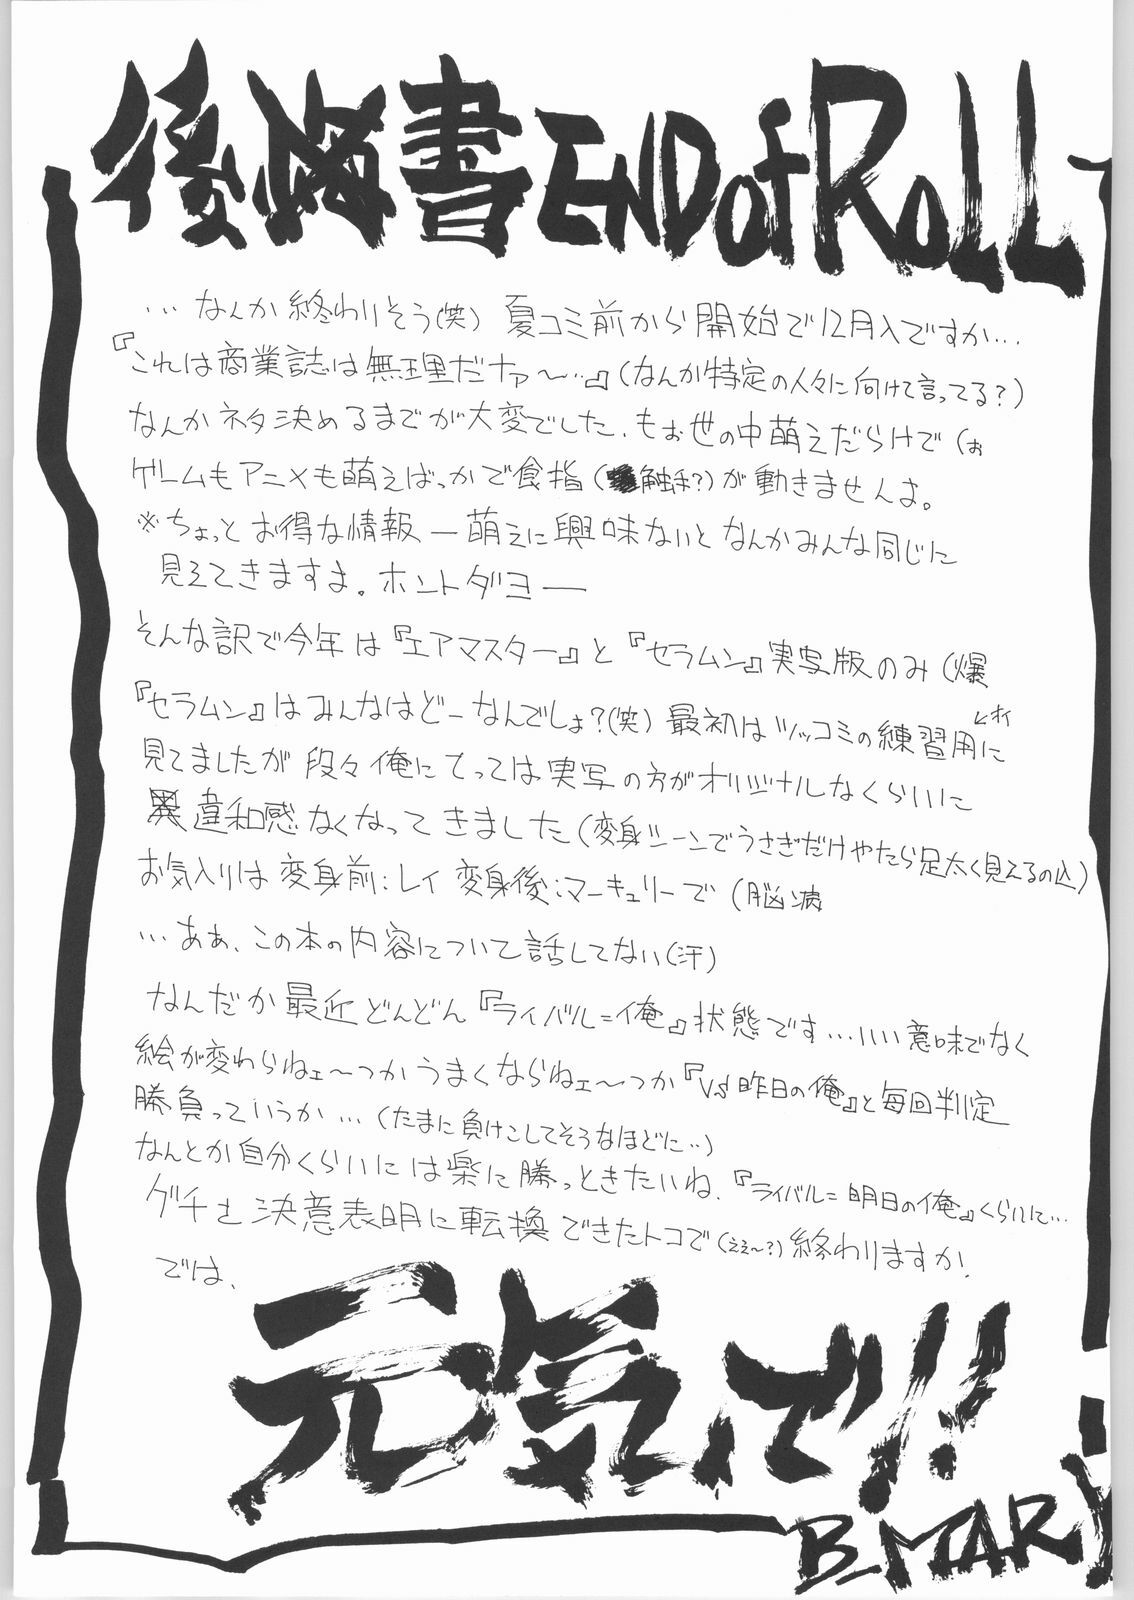 後悔書 END of RoLL
…なんか終わりそう(笑) 夏コミ前から開始で12月入ですか…
『これは商業誌は無理だナァ〜…』(なんか特定の人々に向けて言ってる?)
なんかネタ決めるまでが大変でした、もぉ世の中萌えだらけで(ぉ
ゲームもアニメも萌えばっかで食指(触手?)が動きませんよ。
※ちょっとお得な情報 ― 萌えに興味ないとなんかみんな同じに
見えてきますよ。ホントダヨ―
そんな訳で今年は『エアマスター』と『セラムン』実写版のみ(爆
『セラムン』はみんなはどーなんでしょ?(笑) 最初はツッコミの練習用に
←オイ
見てましたが段々俺にとっては実写の方がオリジナルなくらいに
違和感なくなってきました(変身シーンでうさぎだけやたら足太く見えるの込)
お気入りは変身前:レイ 変身後:マーキュリーで(脳病
…ああ、この本の内容について話してない(汗)
なんだか最近どんどん『ライバル=俺』状態です…いい意味でなく
絵が変わらねェ〜つかうまくならねェ〜つか『VS昨日の俺』と毎回判定
勝負っていうか…(たまに負けこしてそうなほどに…)
なんとか自分くらいには楽に勝っときたいね、『ライバル=明日の俺』くらいに…
グチと決意表明に転換できたトコで(ぇぇ〜?)終わりますか.
では、
元気で!!
B_MARY